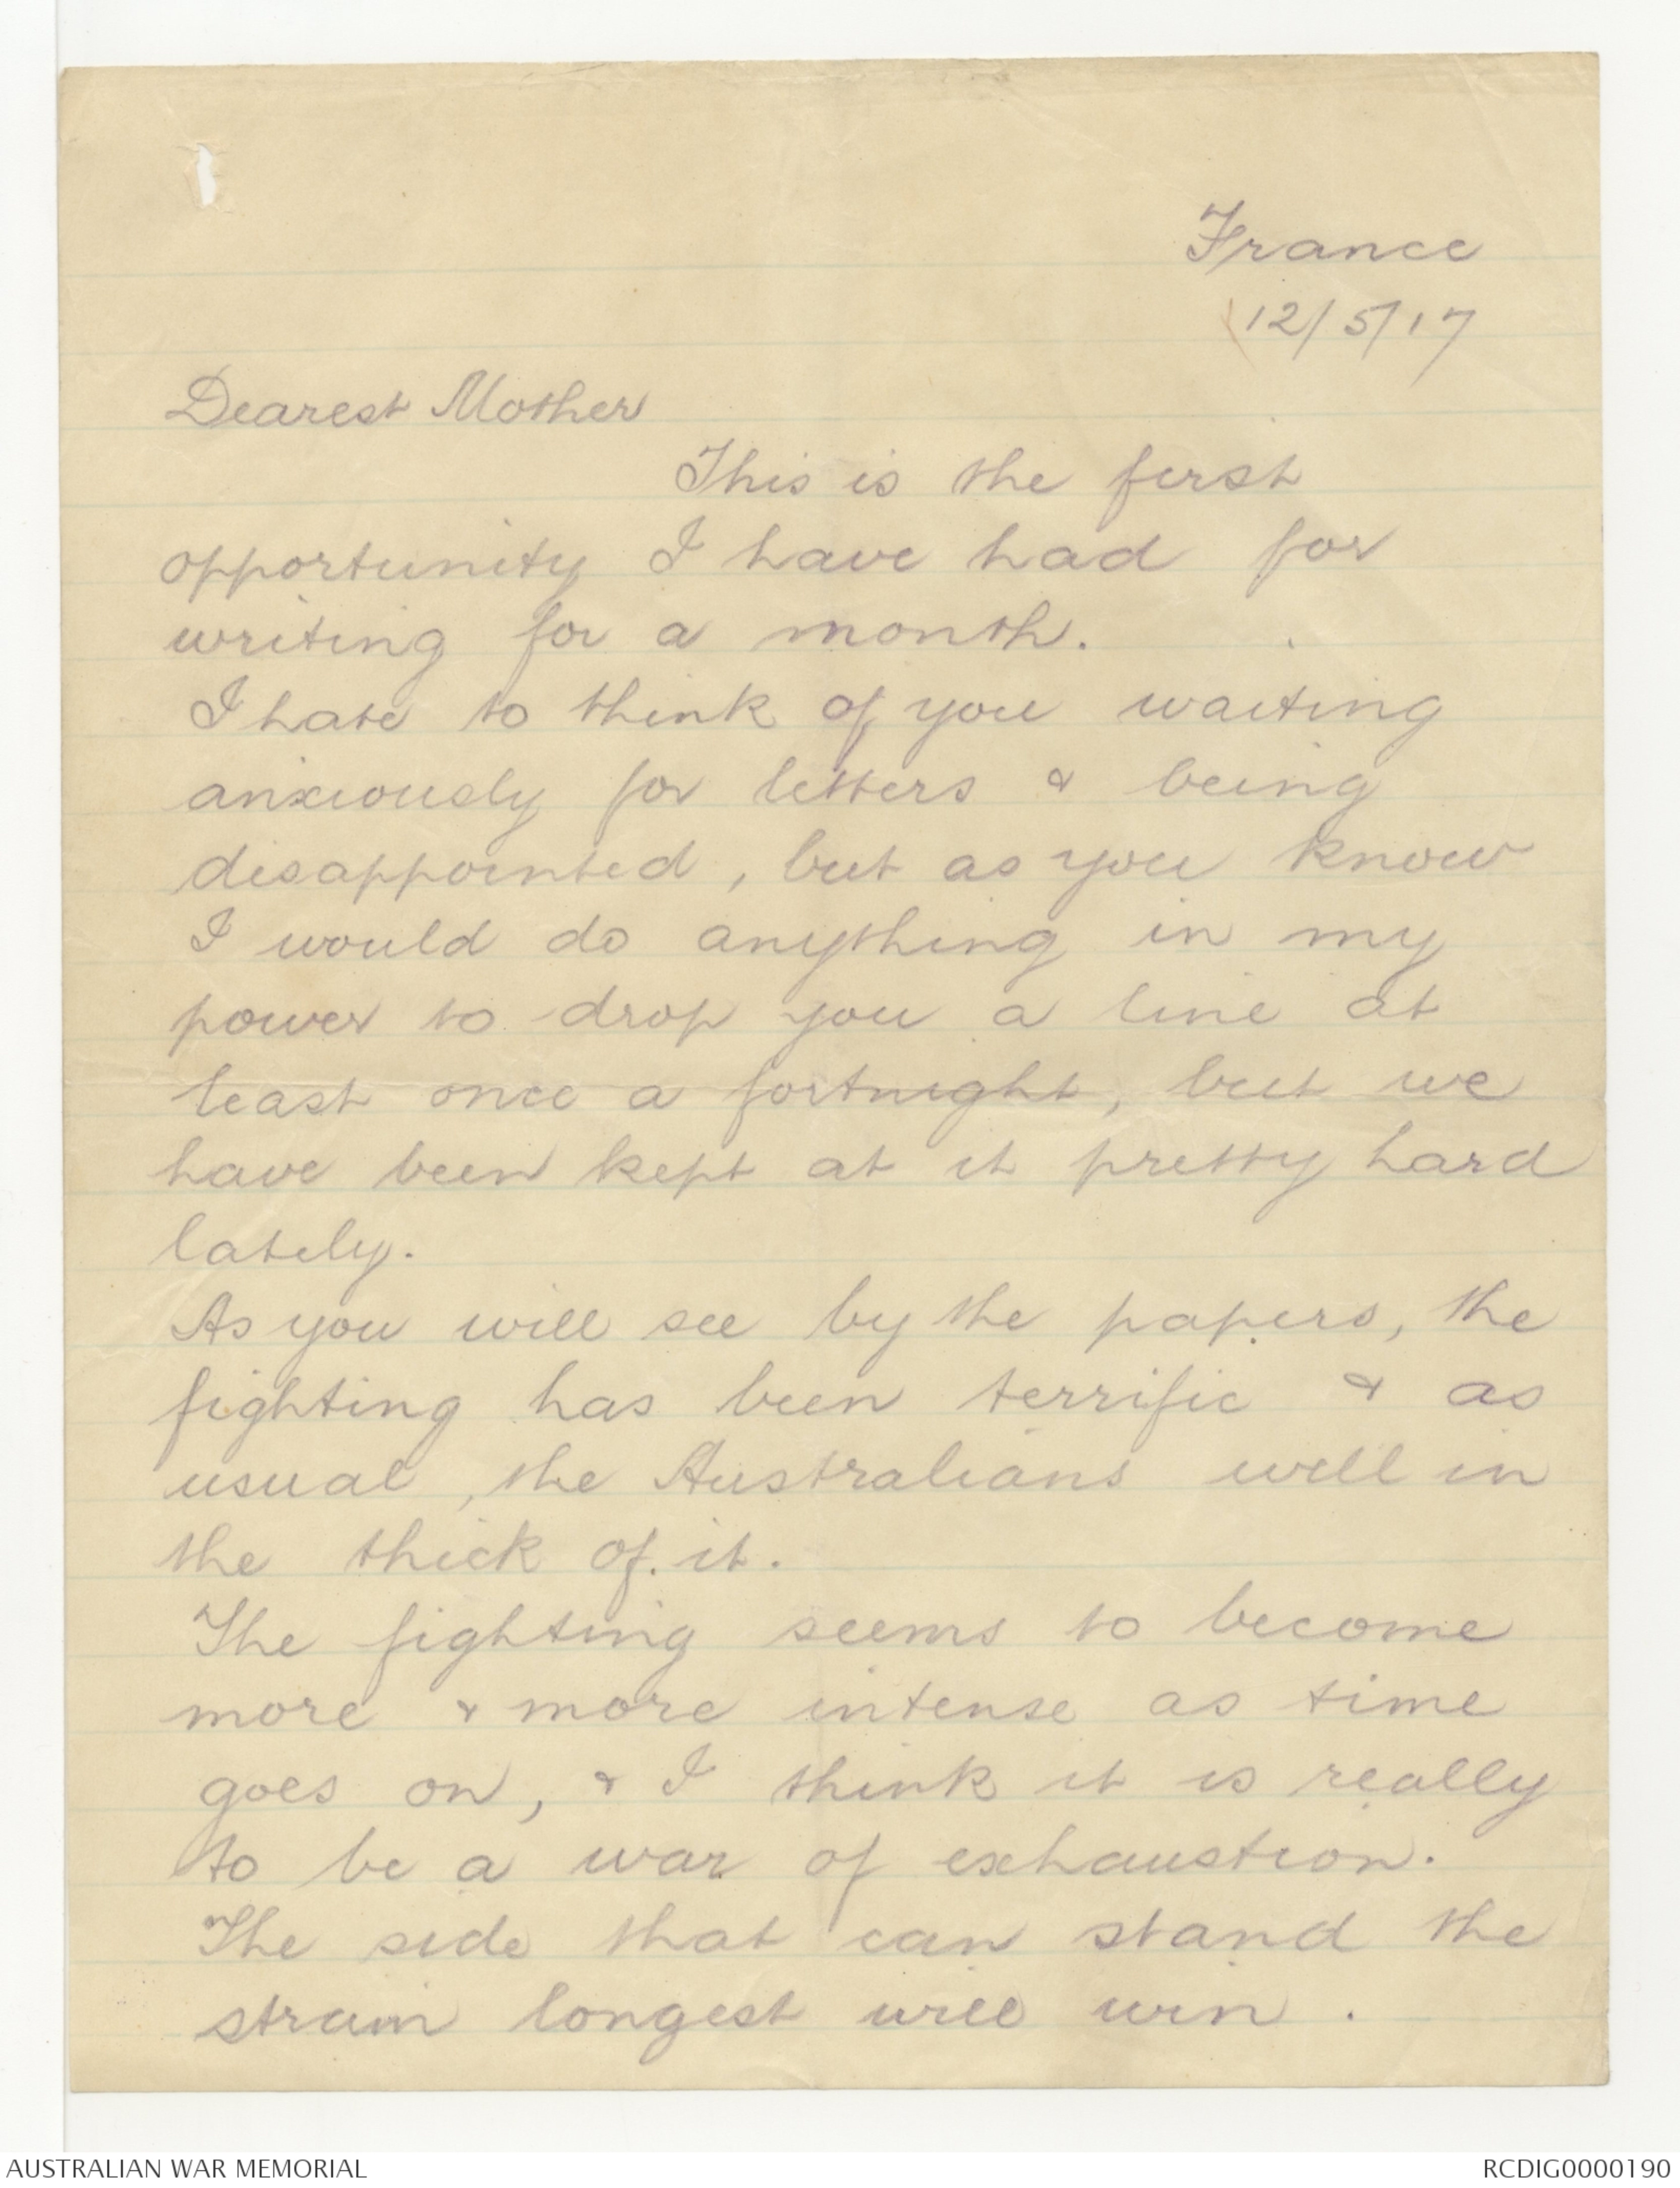 France
12/5/17
Dearest Mother
This is the first
opportunity I have had for
writing for a month.
I hate to think of you waiting
anxiously for letters & being
disappointed, but as you know
I would do anything in my
power to drop you a line at
least once a fortnight, but we
have been kept at it pretty hard
lately.
As you will see by the papers, the
fighting has been terrific & as
usual, the Australians well in
the thick of it.
The fighting seems to become
more & more intense as time
goes on, & I think it is really
to be a war of exhaustion.
The side that can stand the
strain longest will win.
AUSTRALIAN WAR MEMORIAL
RCDIG0000190